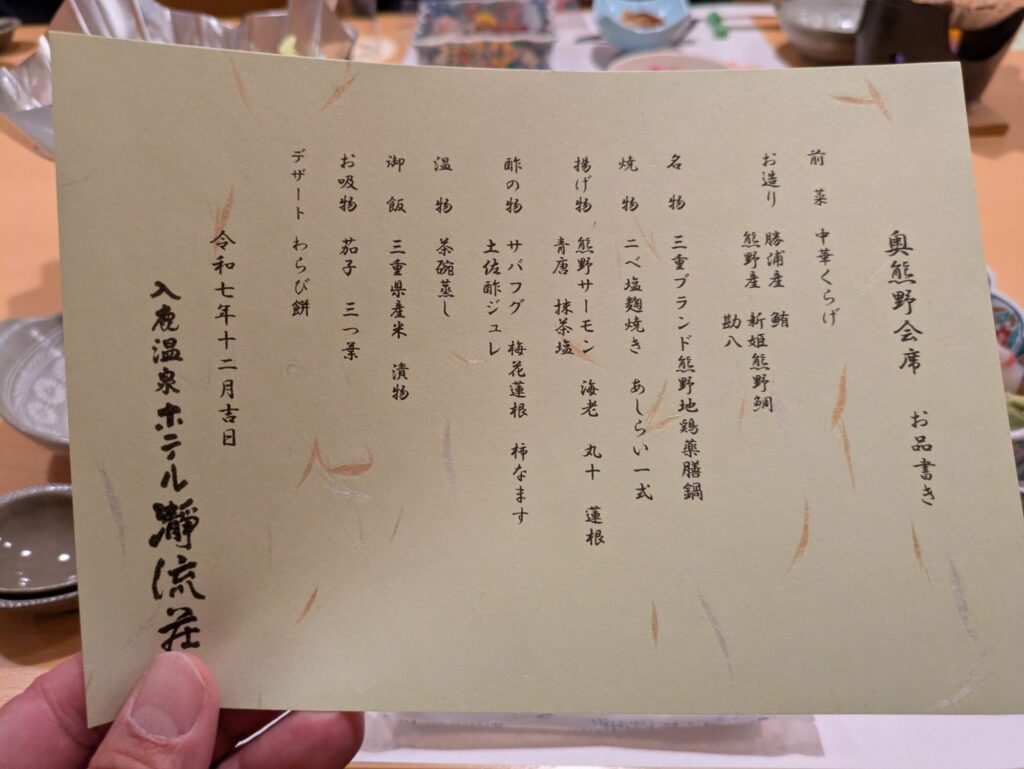 奥熊野会席　お品書き
前菜　中華くらげ
お造り　勝浦産　鮪
熊野産　新姫熊野鯛
勘八
名物　三重ブランド熊野地鶏薬膳鍋
焼物　ニベ塩麹焼き　あしらい一式
揚げ物　熊野サーモン　海老　丸十　蓮根
青唐　抹茶塩
酢の物　サバフグ　梅花蓮根　柿なます
土佐酢ジュレ
温物　茶碗蒸し
御飯　三重県産米　漬物
お吸物　茄子　三つ葉
デザート　わらび餅
令和七年十二月吉日
入鹿温泉ホテル瀞流荘